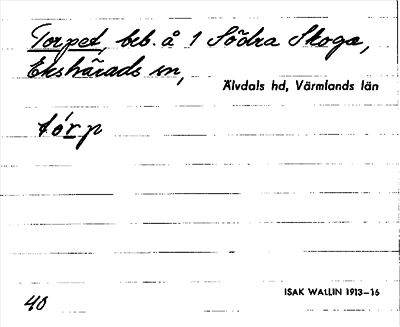 Torpet, beb. å 1 Södra Skoga,
Ekshärads sn,
Älvdals hd, Värmlands län
tórp
ISAK WALLIN 1913–16
40